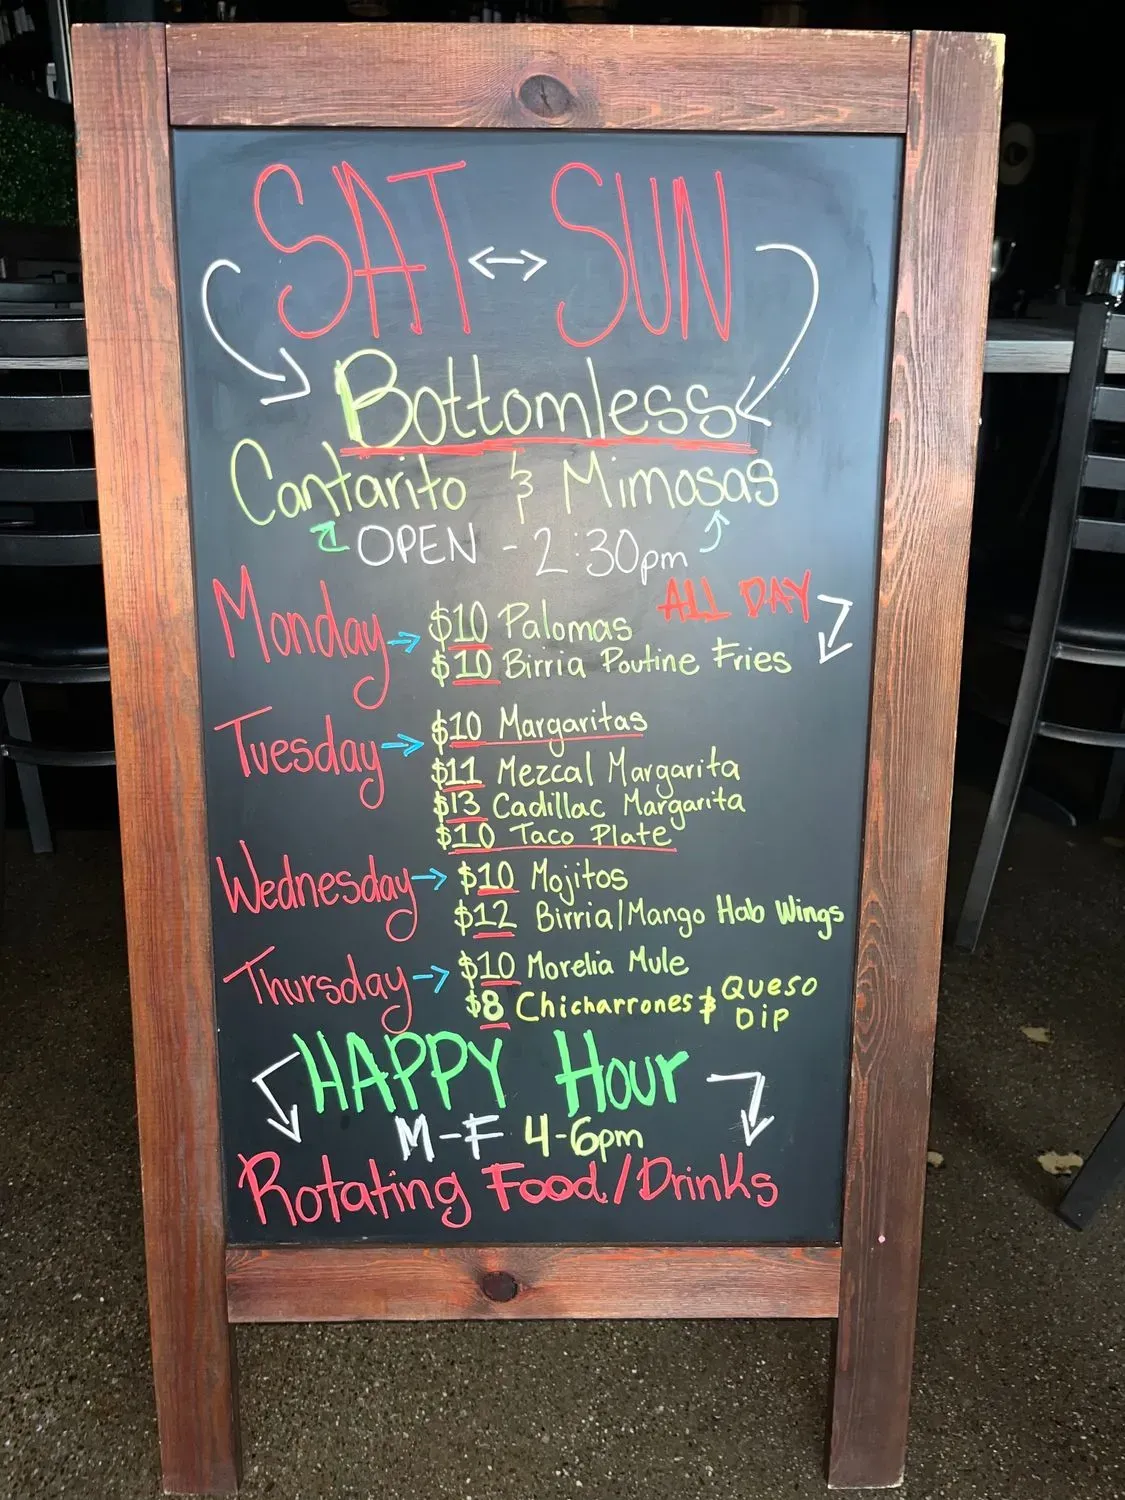 SAT ↔ SUN
Bottomless
Cantarito & Mimosas
OPEN - 2:30pm
ALL DAY
Monday → $10 Palomas
$10 Birria Poutine Fries
Tuesday → $10 Margaritas
$11 Mezcal Margarita
$13 Cadillac Margarita
$10 Taco Plate
Wednesday → $10 Mojitos
$12 Birria/Mango Hab Wings
Thursday → $10 Morelia Mule
$8 Chicharrones & Queso Dip
HAPPY Hour
M-F 4-6pm
Rotating Food/Drinks